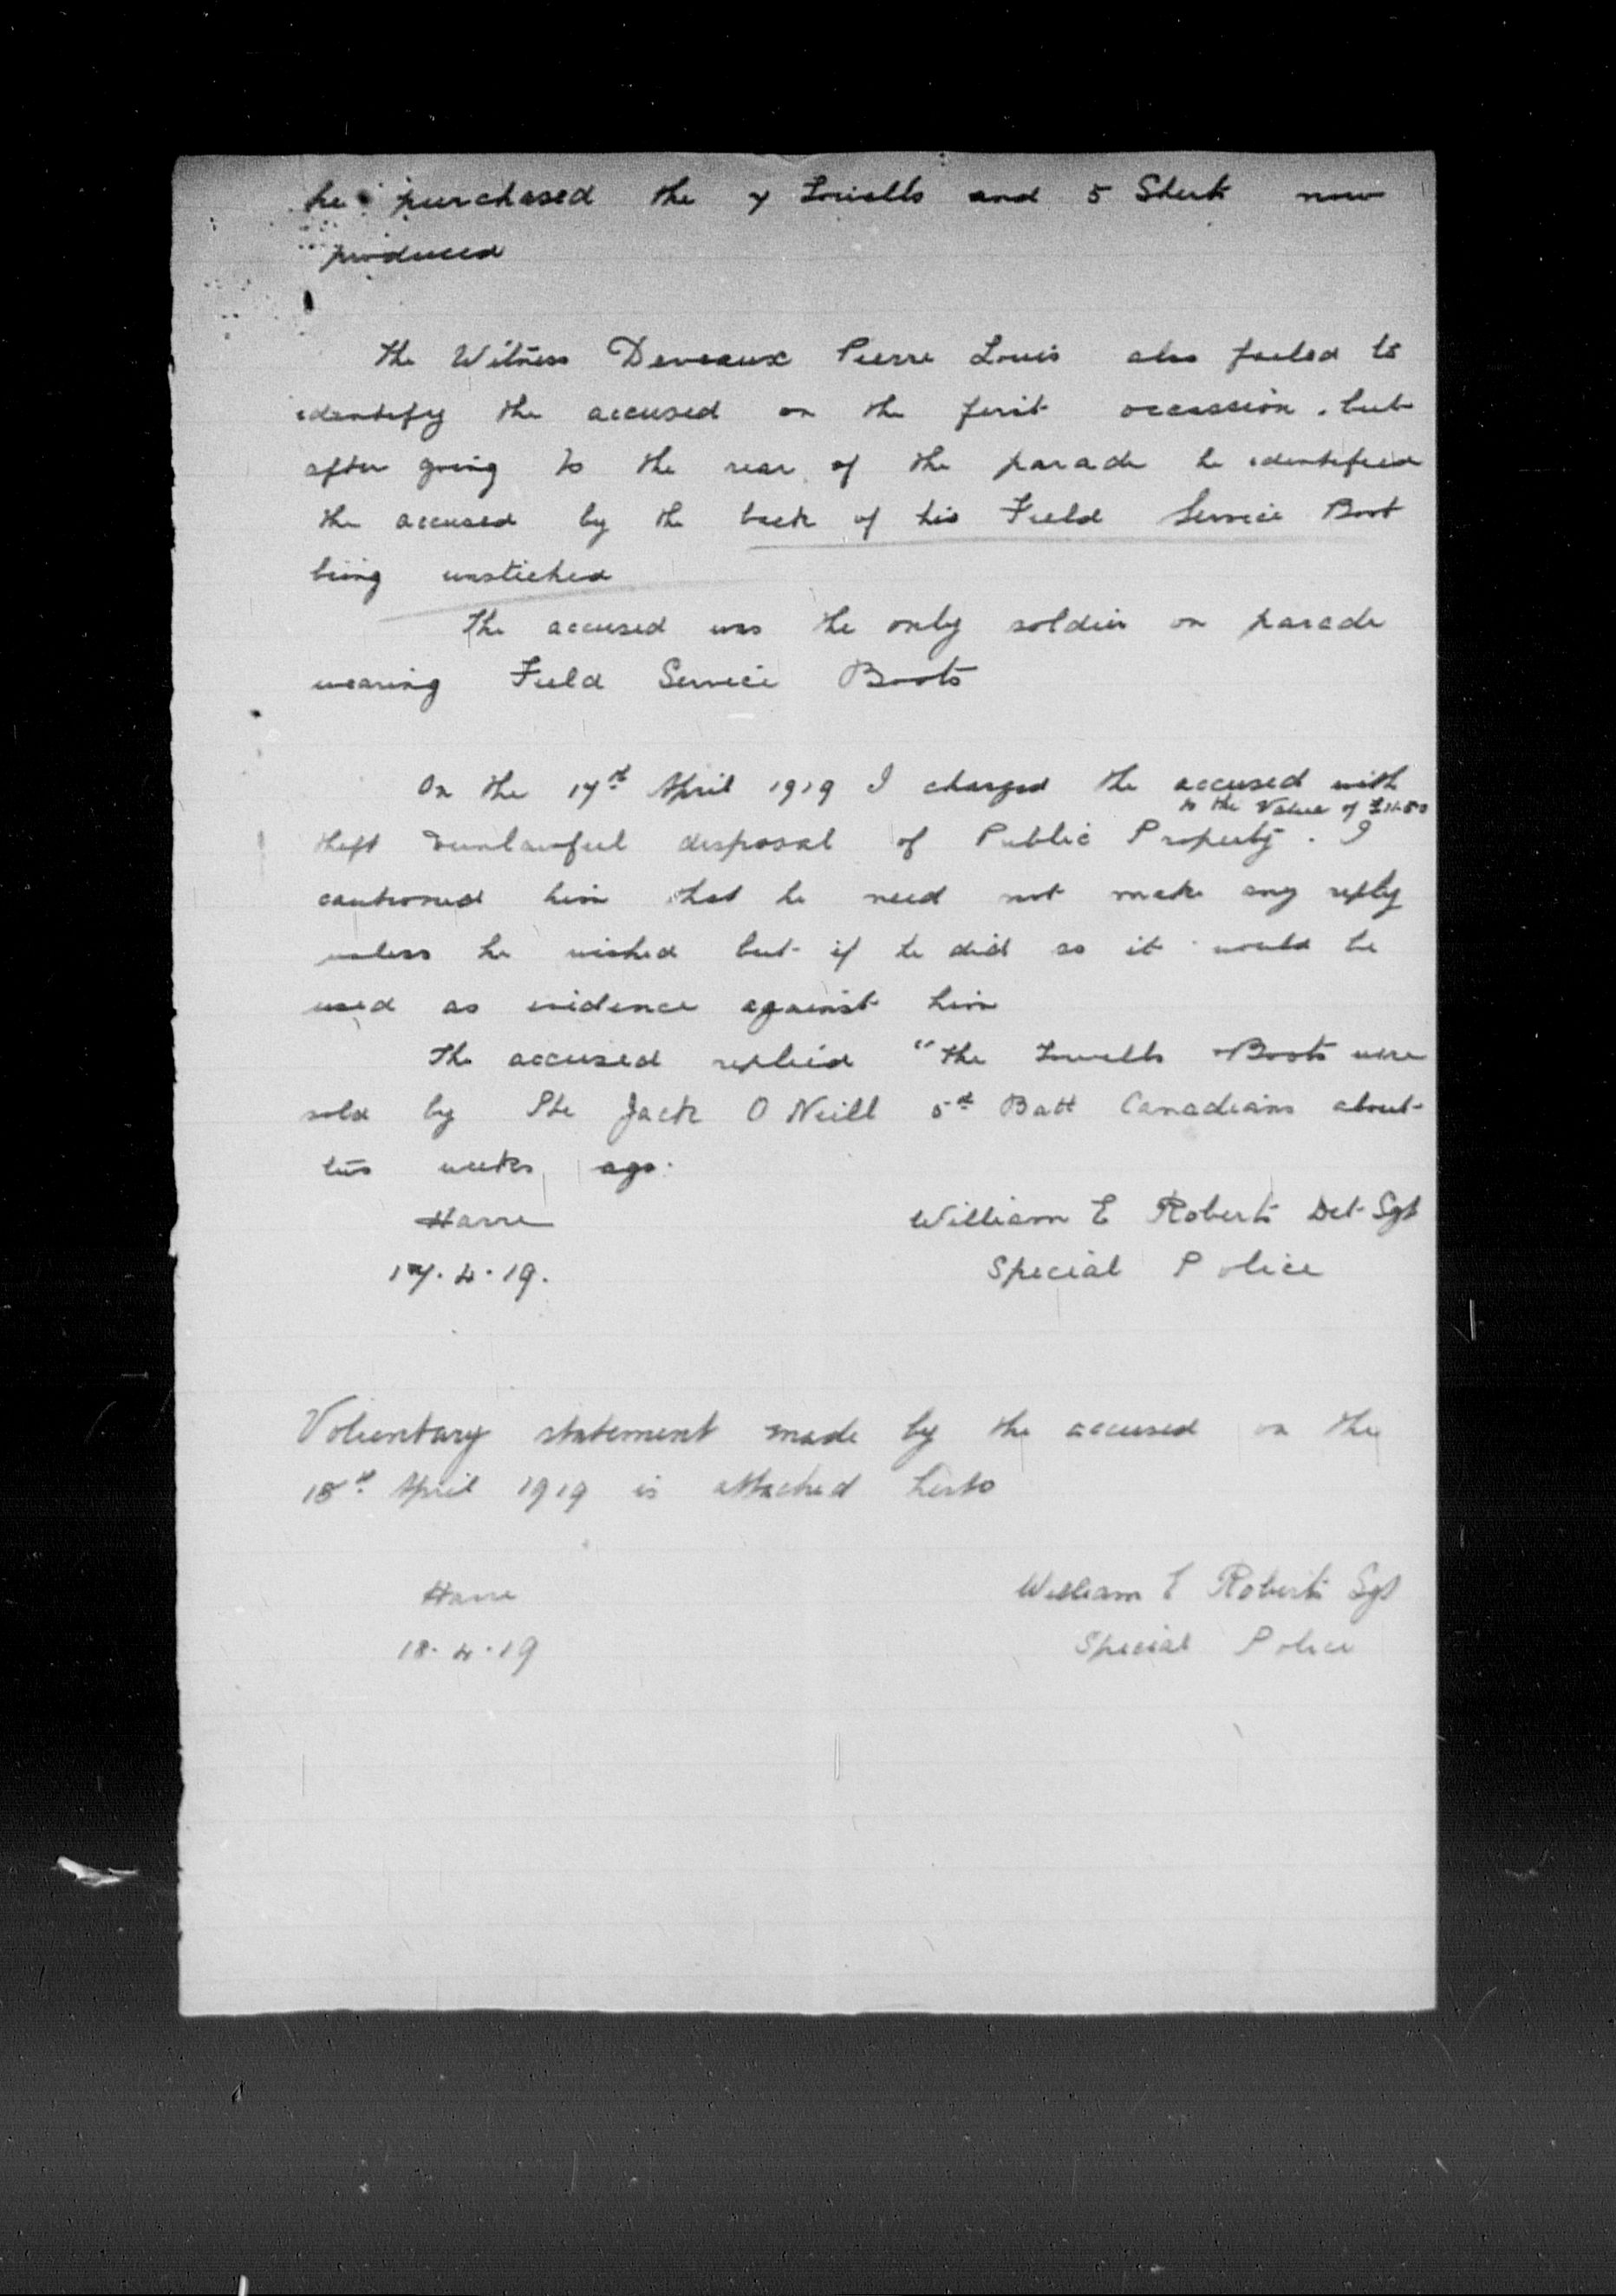 he purchased the 7 Towells and 5 Shirts now
produced
The Witness Deveaux Pierre Louis also failed to
identify the accused on the first occassion. but
after going to the rear of the parade he identified
the accused by the back of his Field Service Boot
being unstiched
The accused was the only soldier on parade
wearing Field Service Boots
On the 17th April 1919 I charged the accused with
to the Value of
theft & unlawful disposal of Public Property. I
cautioned him that he need not make any reply
unless he wished but if he did so it would be
used as evidence against him
The accused replied "The Towells & Boots were
sold by Pte Jack O Neill 5th Batt Canadians about
two weeks ago.
Havre
17.4.19.
William E Roberts Det Sgt
Special Police
Voluntary statement made by the accused on the
18th April 1919 is attached herto
Havre
18.4.19
William E Roberts Sgt
Special Police